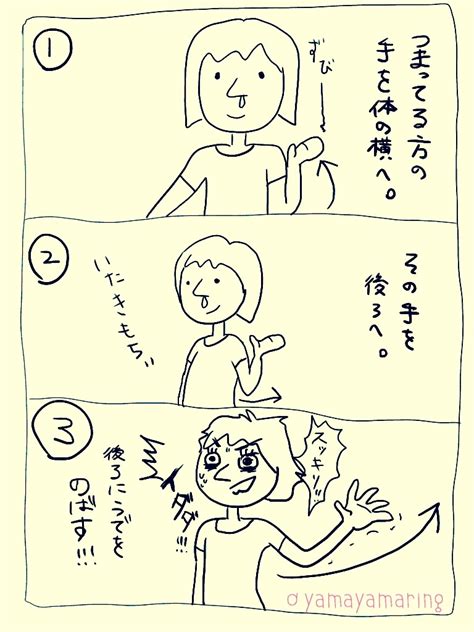 ①
つまってる方の
手を体の横へ。
ずび
②
その手を
後ろへ。
いたきもちぃ
③
スッキリ!!
イダダダ!!!
後ろにうでを
のばす!!!
@yamayamaring